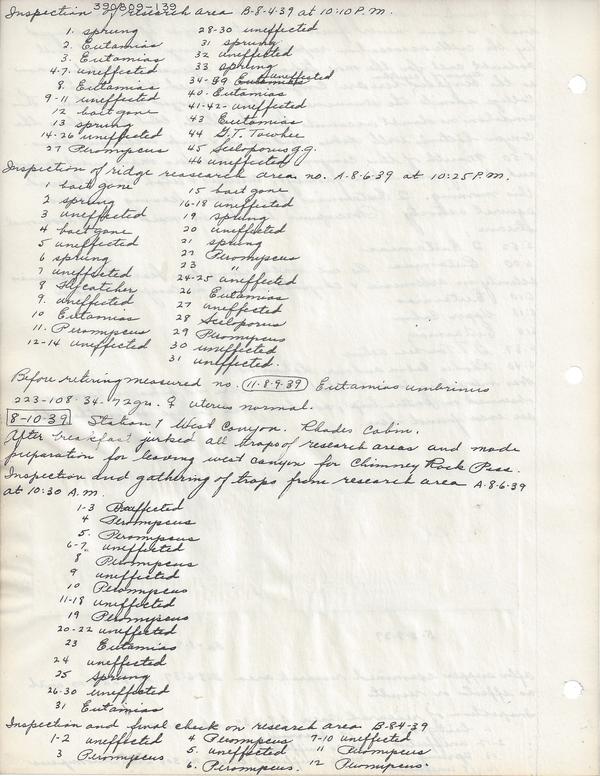 390809-139
Inspection of research area B-8-4-39 at 10:10 P.M.
1. sprung
2. Eutamias
3. Eutamias
4-7. uneffected
8. Eutamias
9-11 uneffected
12 bait gone
13 sprung
14-26 uneffected
27 Peromyscus
28-30 uneffected
31 sprung
32 uneffected
33 sprung
34-39 Eutamias uneffected
40. Eutamias
41-42- uneffected
43 Eutamias
44 G.T. Towhee
45 Sceloporus g.g.
46 uneffected
Inspection of ridge reasearch area no. A-8-6-39 at 10:25 P.M.
1 bait gone
2 sprung
3 uneffected
4 bait gone
5 uneffected
6 sprung
7 uneffected
8 Flycatcher
9. uneffected
10 Eutamias
11. Peromyscus
12-14 uneffected
15 bait gone
16-18 uneffected
19 sprung
20 uneffected
21 sprung
22 Peromyscus
23 "
24-25 uneffected
26 Eutamias
27 uneffected
28 Sceloporus
29 Peromyscus
30 uneffected
31 uneffected.
Before retiring measured no. 11-8-9-39 Eutamias umbrinus
223-108-34-72gr. ♀ uterus normal.
8-10-39 Station 1 West Canyon. Rhades Cabin.
After breakfast jurked all traps of research areas and made
preparation for leaving west canyon for Chimney Rock Pass.
Inspection and gathering of traps from research area A-8-6-39
at 10:30 A.M.
1-3 uneffected
4 Peromyscus
5. Peromyscus
6-7. uneffected
8 Peromyscus
9 uneffected
10 Peromyscus
11-18 uneffected
19 Peromyscus
20-22 uneffected
23 Eutamias
24 uneffected
25 sprung
26-30 uneffected
31 Eutamias
Inspection and final check on research area B-8-4-39
1-2 uneffected
3 Peromyscus
4 Peromyscus
5. uneffected
6. Peromyscus.
7-10 uneffected
11 Peromyscus
12 Peromyscus.